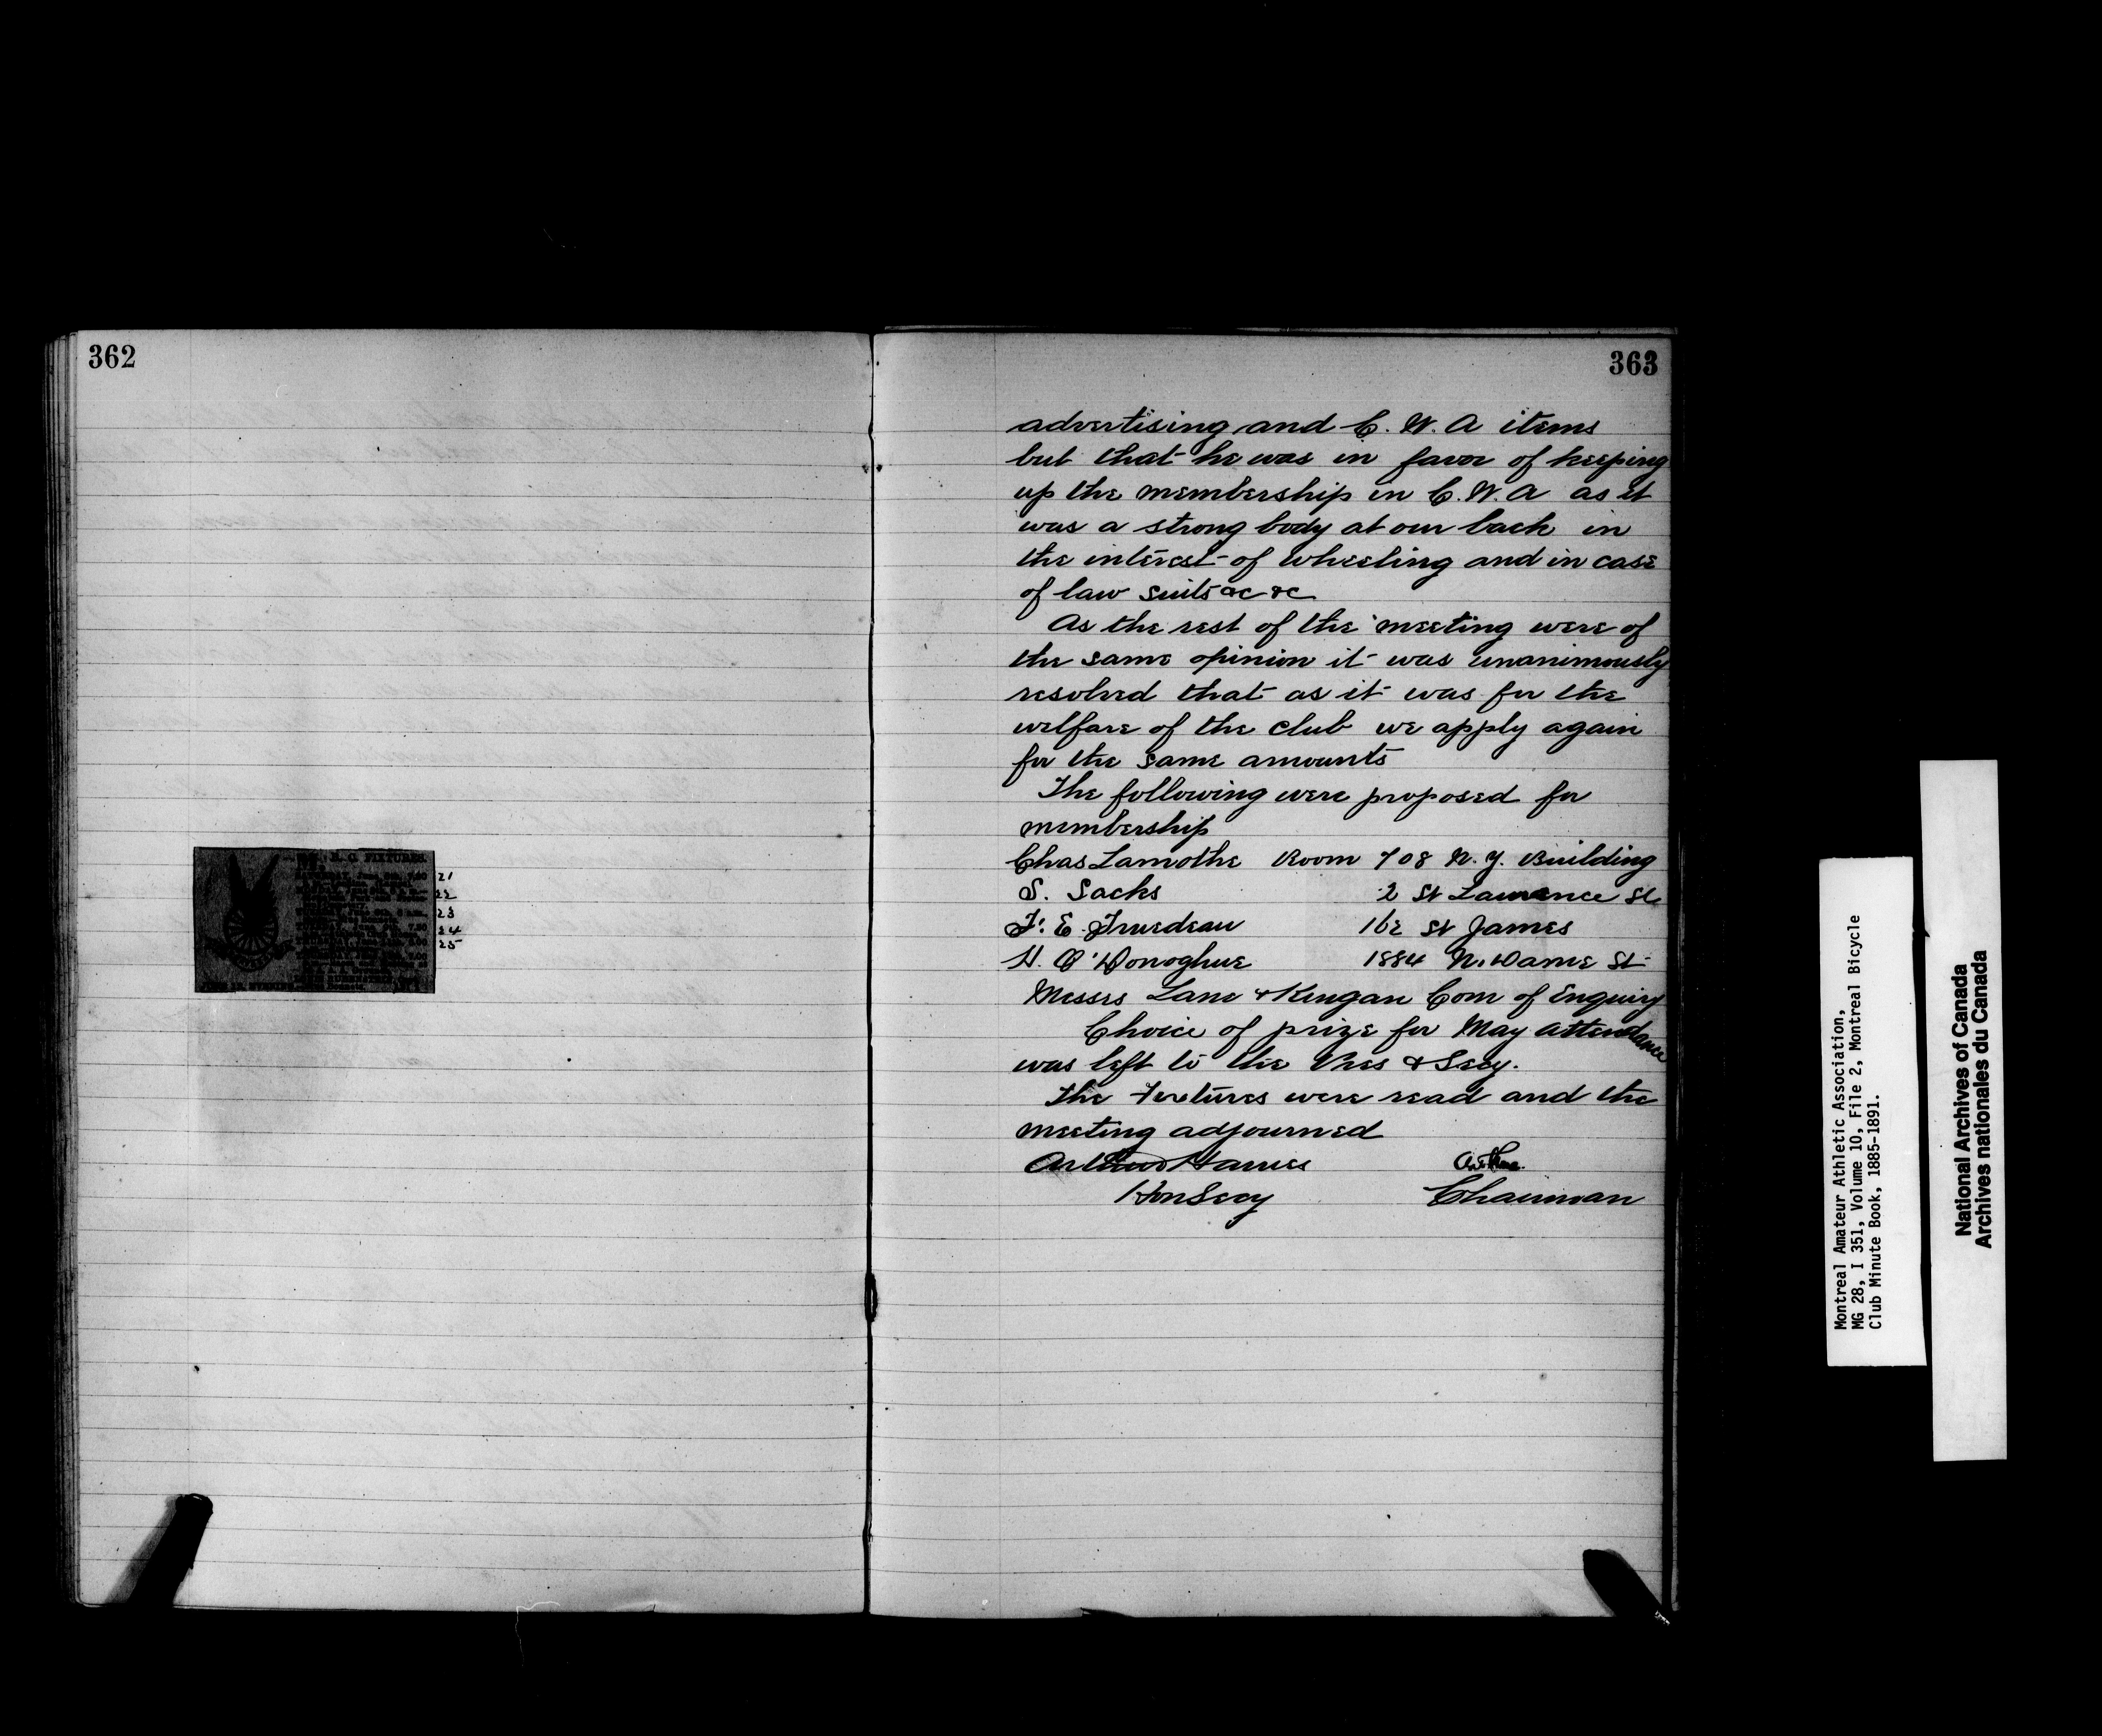 362
B. C. FIXTURES.
21
22
23
24
25
363
advertising and C. W. A items
but that he was in favor of keeping
up the membership in C. W. A as it
was a strong body at our back in
the interest of wheeling and in case
of law suits &c &c
As the rest of the meeting were of
the same opinion it was unanimously
resolved that as it was for the
welfare of the club we apply again
for the same amounts
The following were proposed for
membership
Chas Lamothe Room 708 N. Y. Building
S. Sacks 2 St Lawrence St
F. E. Truedeau 162 St James
H. O'Donoghue 1884 N. Dame St
Messrs Lane & Kengan Com of Enquiry
Choice of prize for May attendance
was left to the Pres & Secy.
The fixtures were read and the
meeting adjourned
Hon Secy Chairman
Montreal Amateur Athletic Association,
MG 28, I 351, Volume 10, File 2, Montreal Bicycle
Club Minute Book, 1885-1891.
National Archives of Canada
Archives nationales du Canada